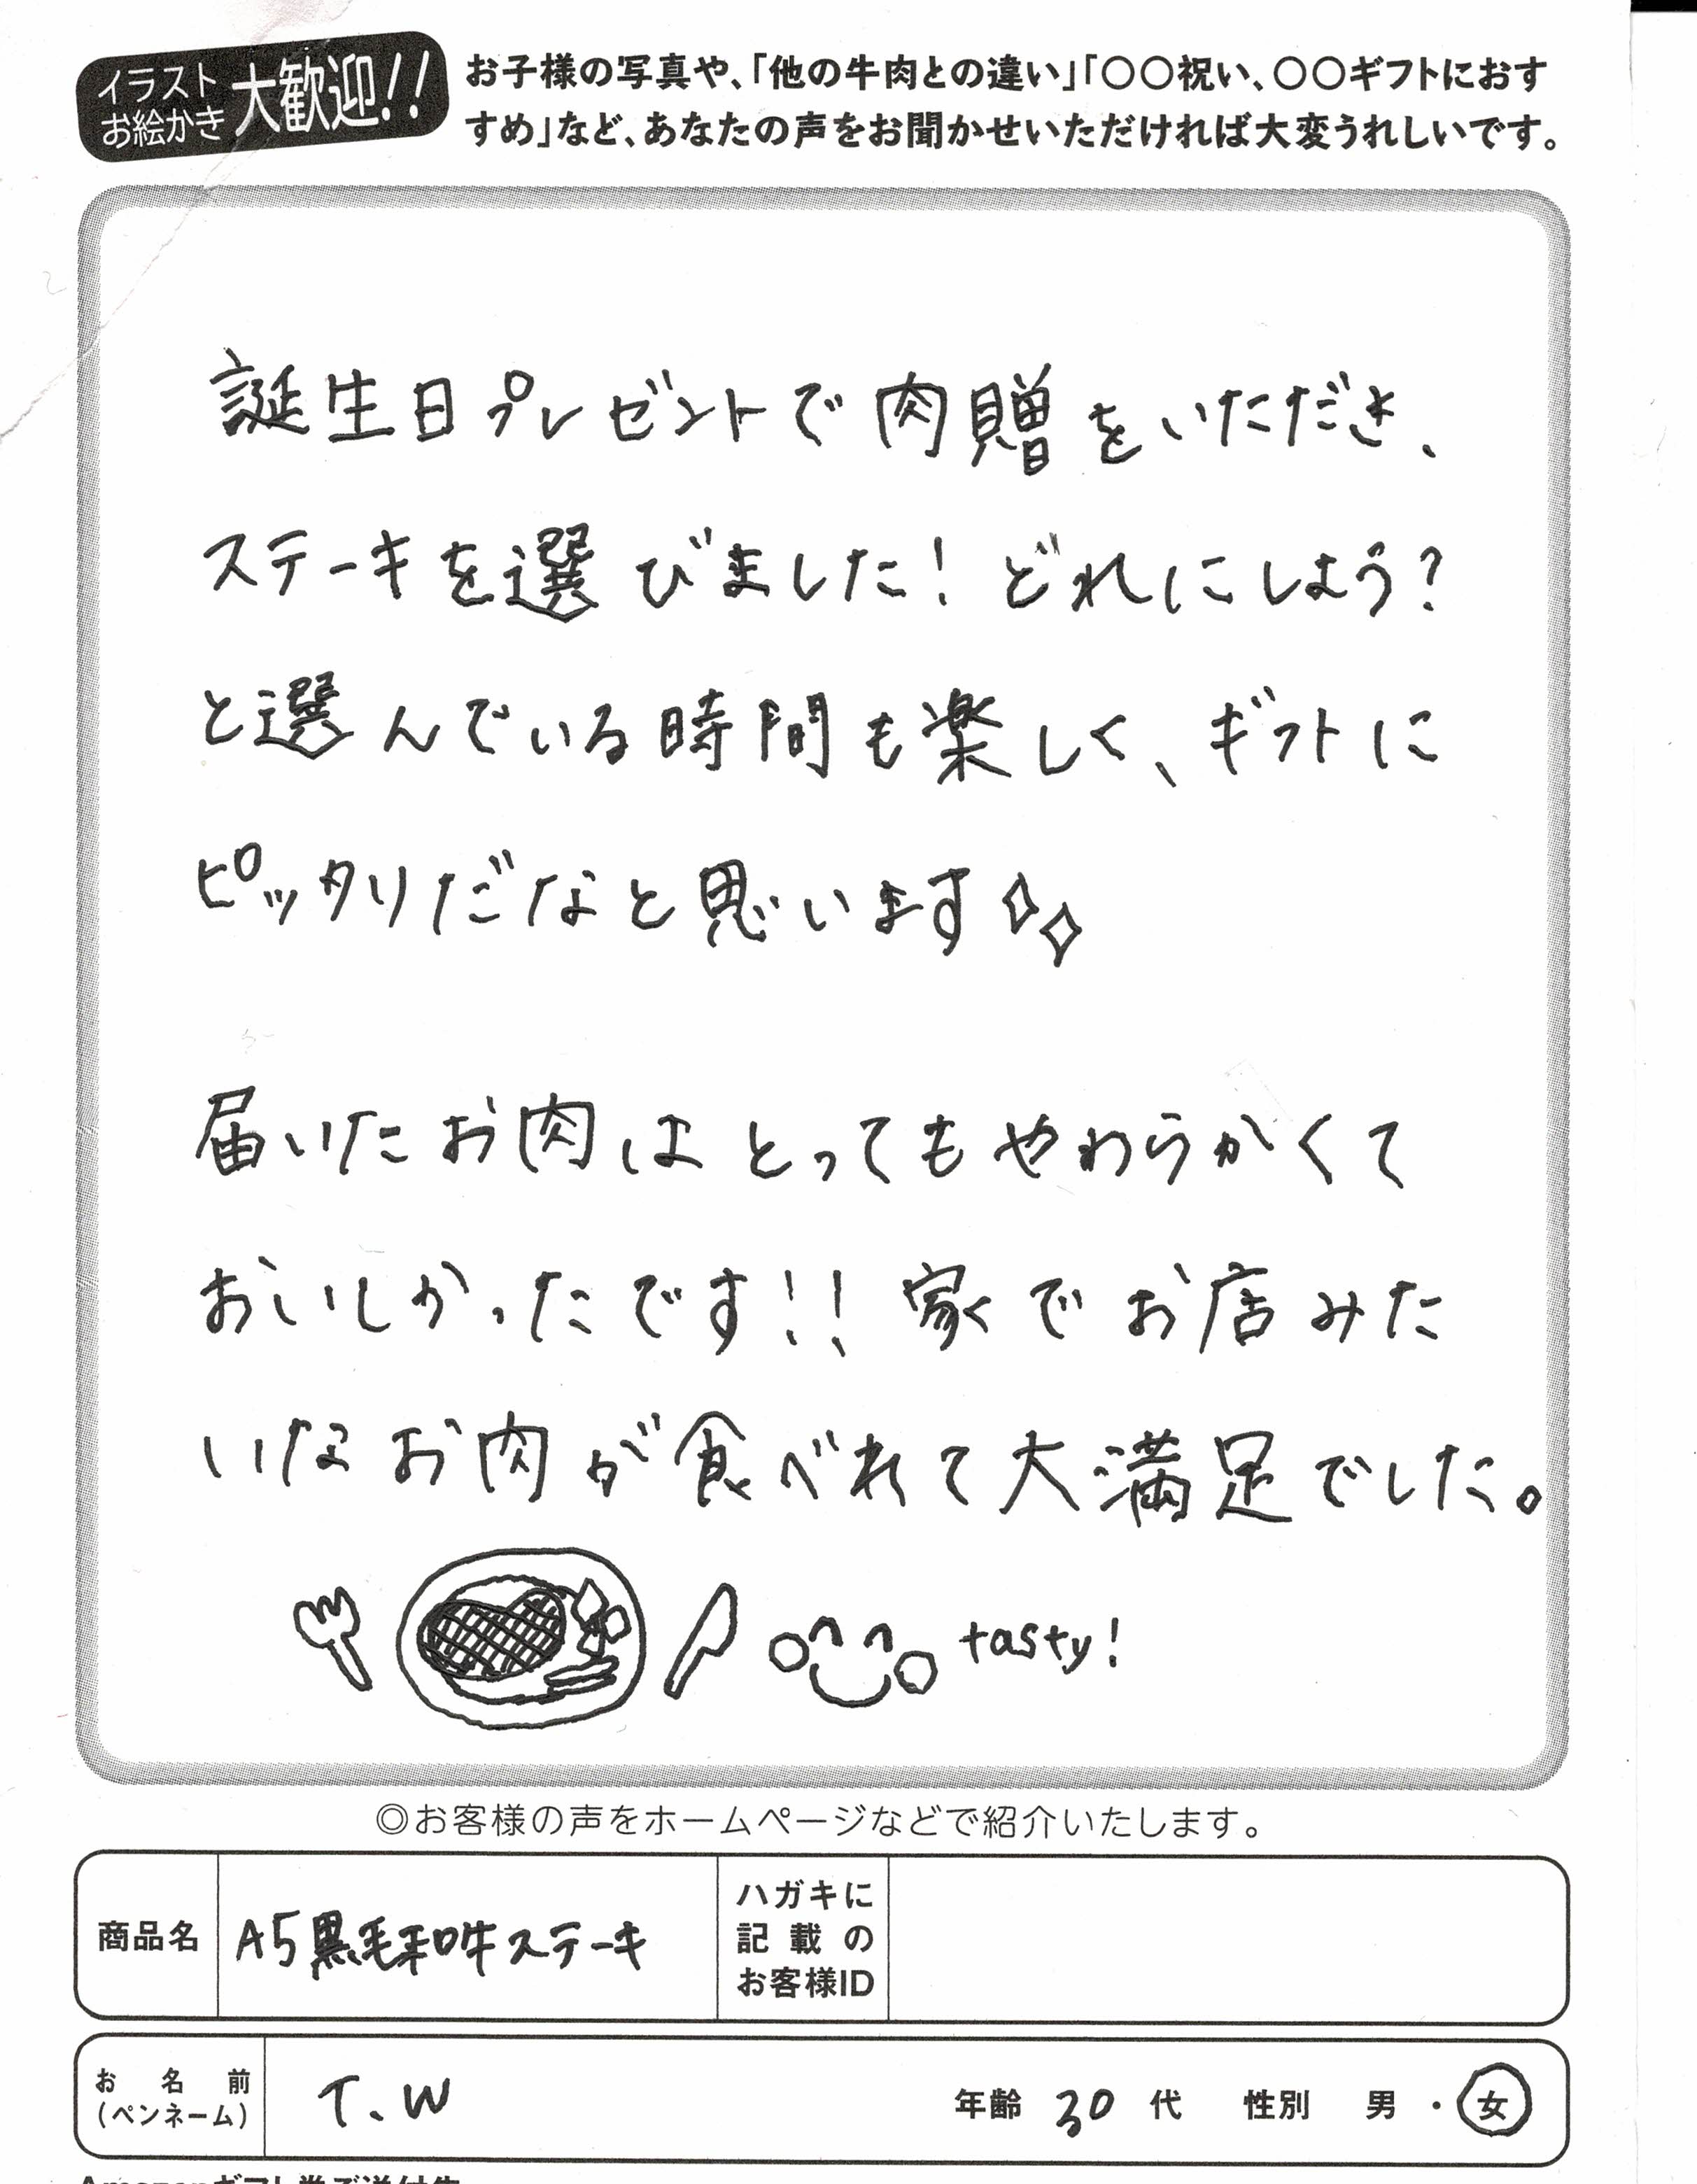 イラスト
お絵かき
大歓迎!!
お子様の写真や、「他の牛肉との違い」「〇〇祝い、〇〇ギフトにおす
すめ」など、あなたの声をお聞かせいただければ大変うれしいです。
誕生日プレゼントで肉贈をいただき、
ステーキを選びました!どれにしよう?
と選んでいる時間も楽しく、ギフトに
ピッタリだなと思います
届いたお肉はとってもやわらかくて
おいしかったです!!家でお店みた
いなお肉が食べれて大満足でした。
tasty!
◎お客様の声をホームページなどで紹介いたします。
商品名 A5黒毛和牛ステーキ
ハガキに
記載の
お客様ID
お名前
(ペンネーム)
T.W 年齢 30代 性別 男・女